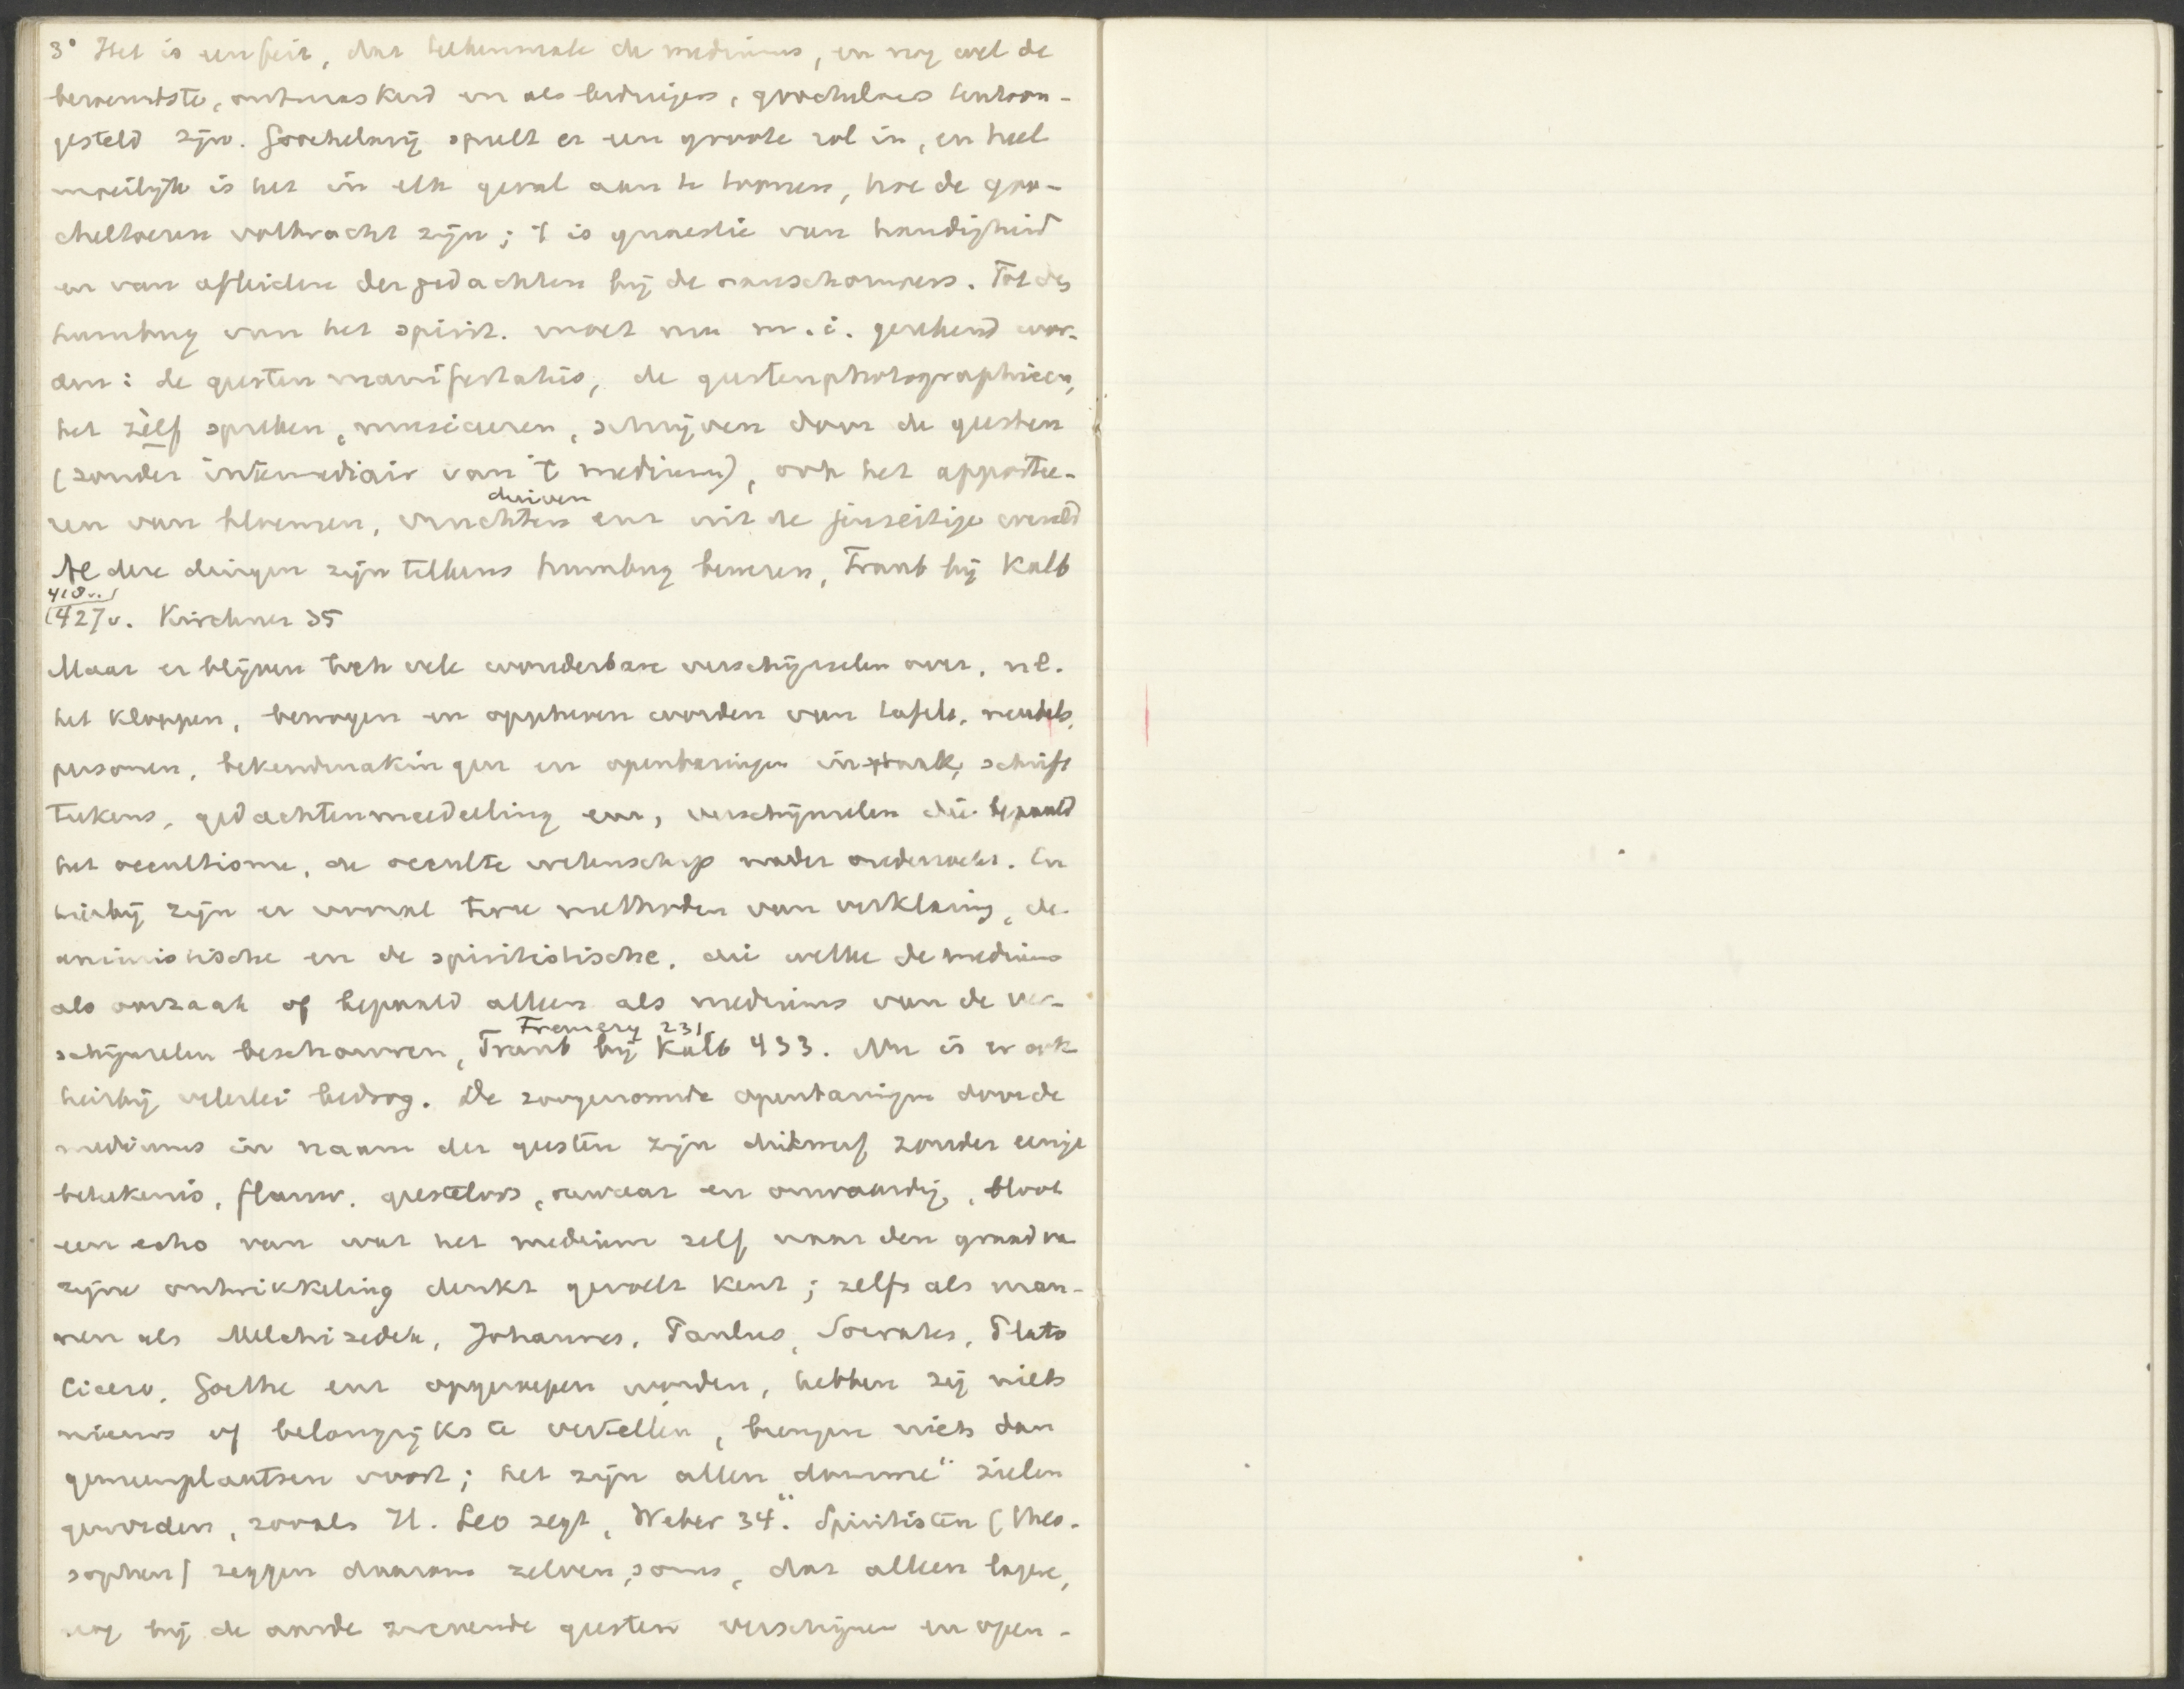 3° Het is een feit, dat telkenmale de mediums, en nog wel de
beroemdste, ontmaskerd en als bedriegers, goochelaars tentoon-
gesteld zijn. Goochelarij speelt er een groote rol in, en heel
moeilijk is het in elk geval aan te toonen, hoe de goo-
cheltoeren volbracht zijn; 't is quaestie van handigheid
en van afleiden der gedachten bij de aanschouwers. Tot den
humbug van het spirit. moet nu m.i. gerekend wor-
den: de geestenmanifestaties, de geestenphotographieen,
het zèlf spreken, musiceeren, schrijven door de geesten
(zonder intermediair van 't medium), ook het apportee-
duiven
ren van bloemen, vruchten enz uit de jenseitige wereld
Al deze dingen zijn telkens humbug bewezen, Traub bij Kalb
418v.)
(427v. Kirchner 35
Maar er blijven toch vele wonderbare verschijnselen over, nl.
het kloppen, bewogen en opgeheven worden van tafels, meubels,
personen, bekendmakingen en openbaringen in spraak, schrift
teekens, gedachtenmededeeling enz, verschijnselen die bepaald
het occultisme, de occulte wetenschap nader onderzoekt. En
hierbij zijn er vooral twee methoden van verklaring, de
animistische en de spiritistische, die welke de mediums
als oorzaak of bepaald alleen als mediums van de ver-
Fremery 231
schijnselen beschouwen, Traub bij Kalb 433. Nu is er ook
hierbij velerlei bedrog. De zoogenaamde openbaringen door de
mediums in naam der geesten zijn dikwerf zonder eenige
beteekenis, flauw, geesteloos, onwaar en onwaardig, bloot
een echo van wat het medium zelf naar den graad van
zijne ontwikkeling denkt gevoelt kent; zelfs als man-
nen als Melchizedek, Johannes, Paulus, Socrates, Plato
Cicero, Goethe enz opgeroepen worden, hebben zij niets
nieuws of belangrijks te vertellen, brengen niets dan
gemeenplaatsen voort; het zijn allen „domme" zielen
geworden, zooals H. Leo zegt, Weber 34. Spiritisten (theo-
sophen) zeggen daarom zelven soms, dat alleen lagere,
nog bij de aarde zwevende geesten verschijnen en open-